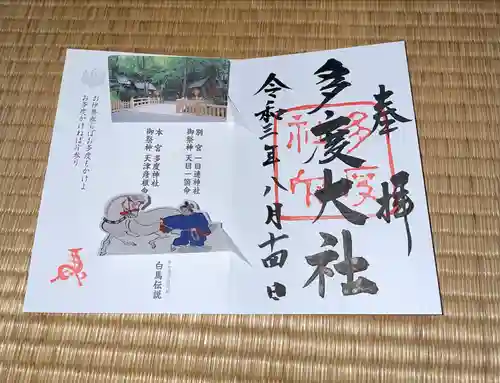 奉拝
多度大社
令和三年八月十四日
別宮 一目連神社
御祭神 天目一箇命
本宮 多度神社
御祭神 天津彦根命
白馬伝説
お伊勢参らばお多度もかけよ
お多度かけねば片参り